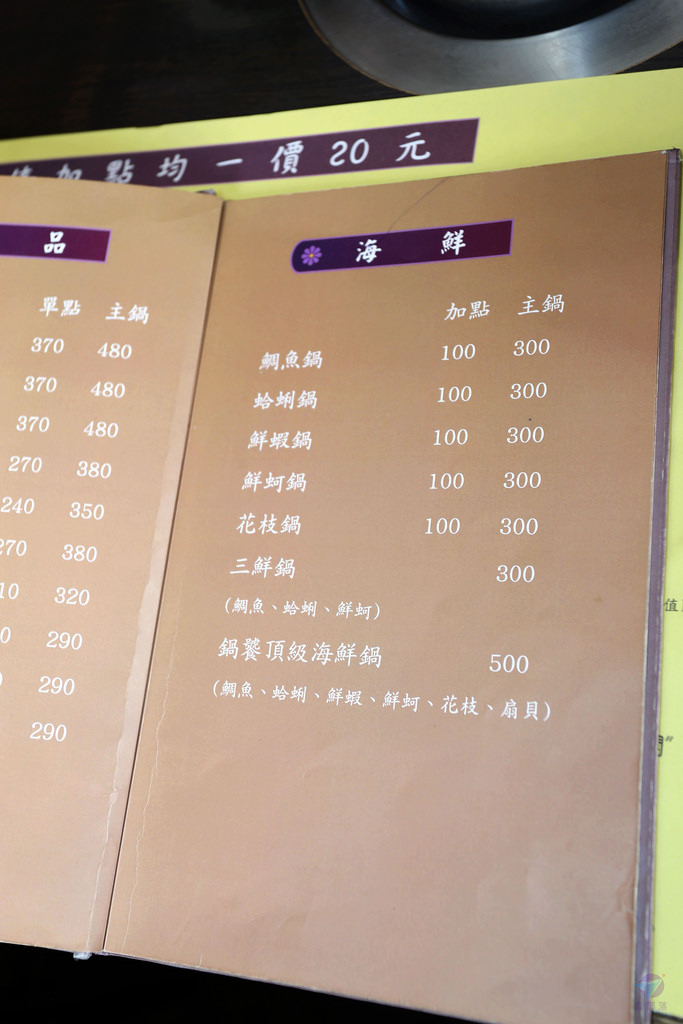 加點均一價20元
品
單點 主鍋
370 480
370 480
370 480
270 380
240 350
270 380
10 320
0 290
290
290
海鮮
加點 主鍋
鯛魚鍋 100 300
蛤蜊鍋 100 300
鮮蝦鍋 100 300
鮮蚵鍋 100 300
花枝鍋 100 300
三鮮鍋 300
(鯛魚、蛤蜊、鮮蚵)
鍋饕頂級海鮮鍋 500
(鯛魚、蛤蜊、鮮蝦、鮮蚵、花枝、扇貝)
值